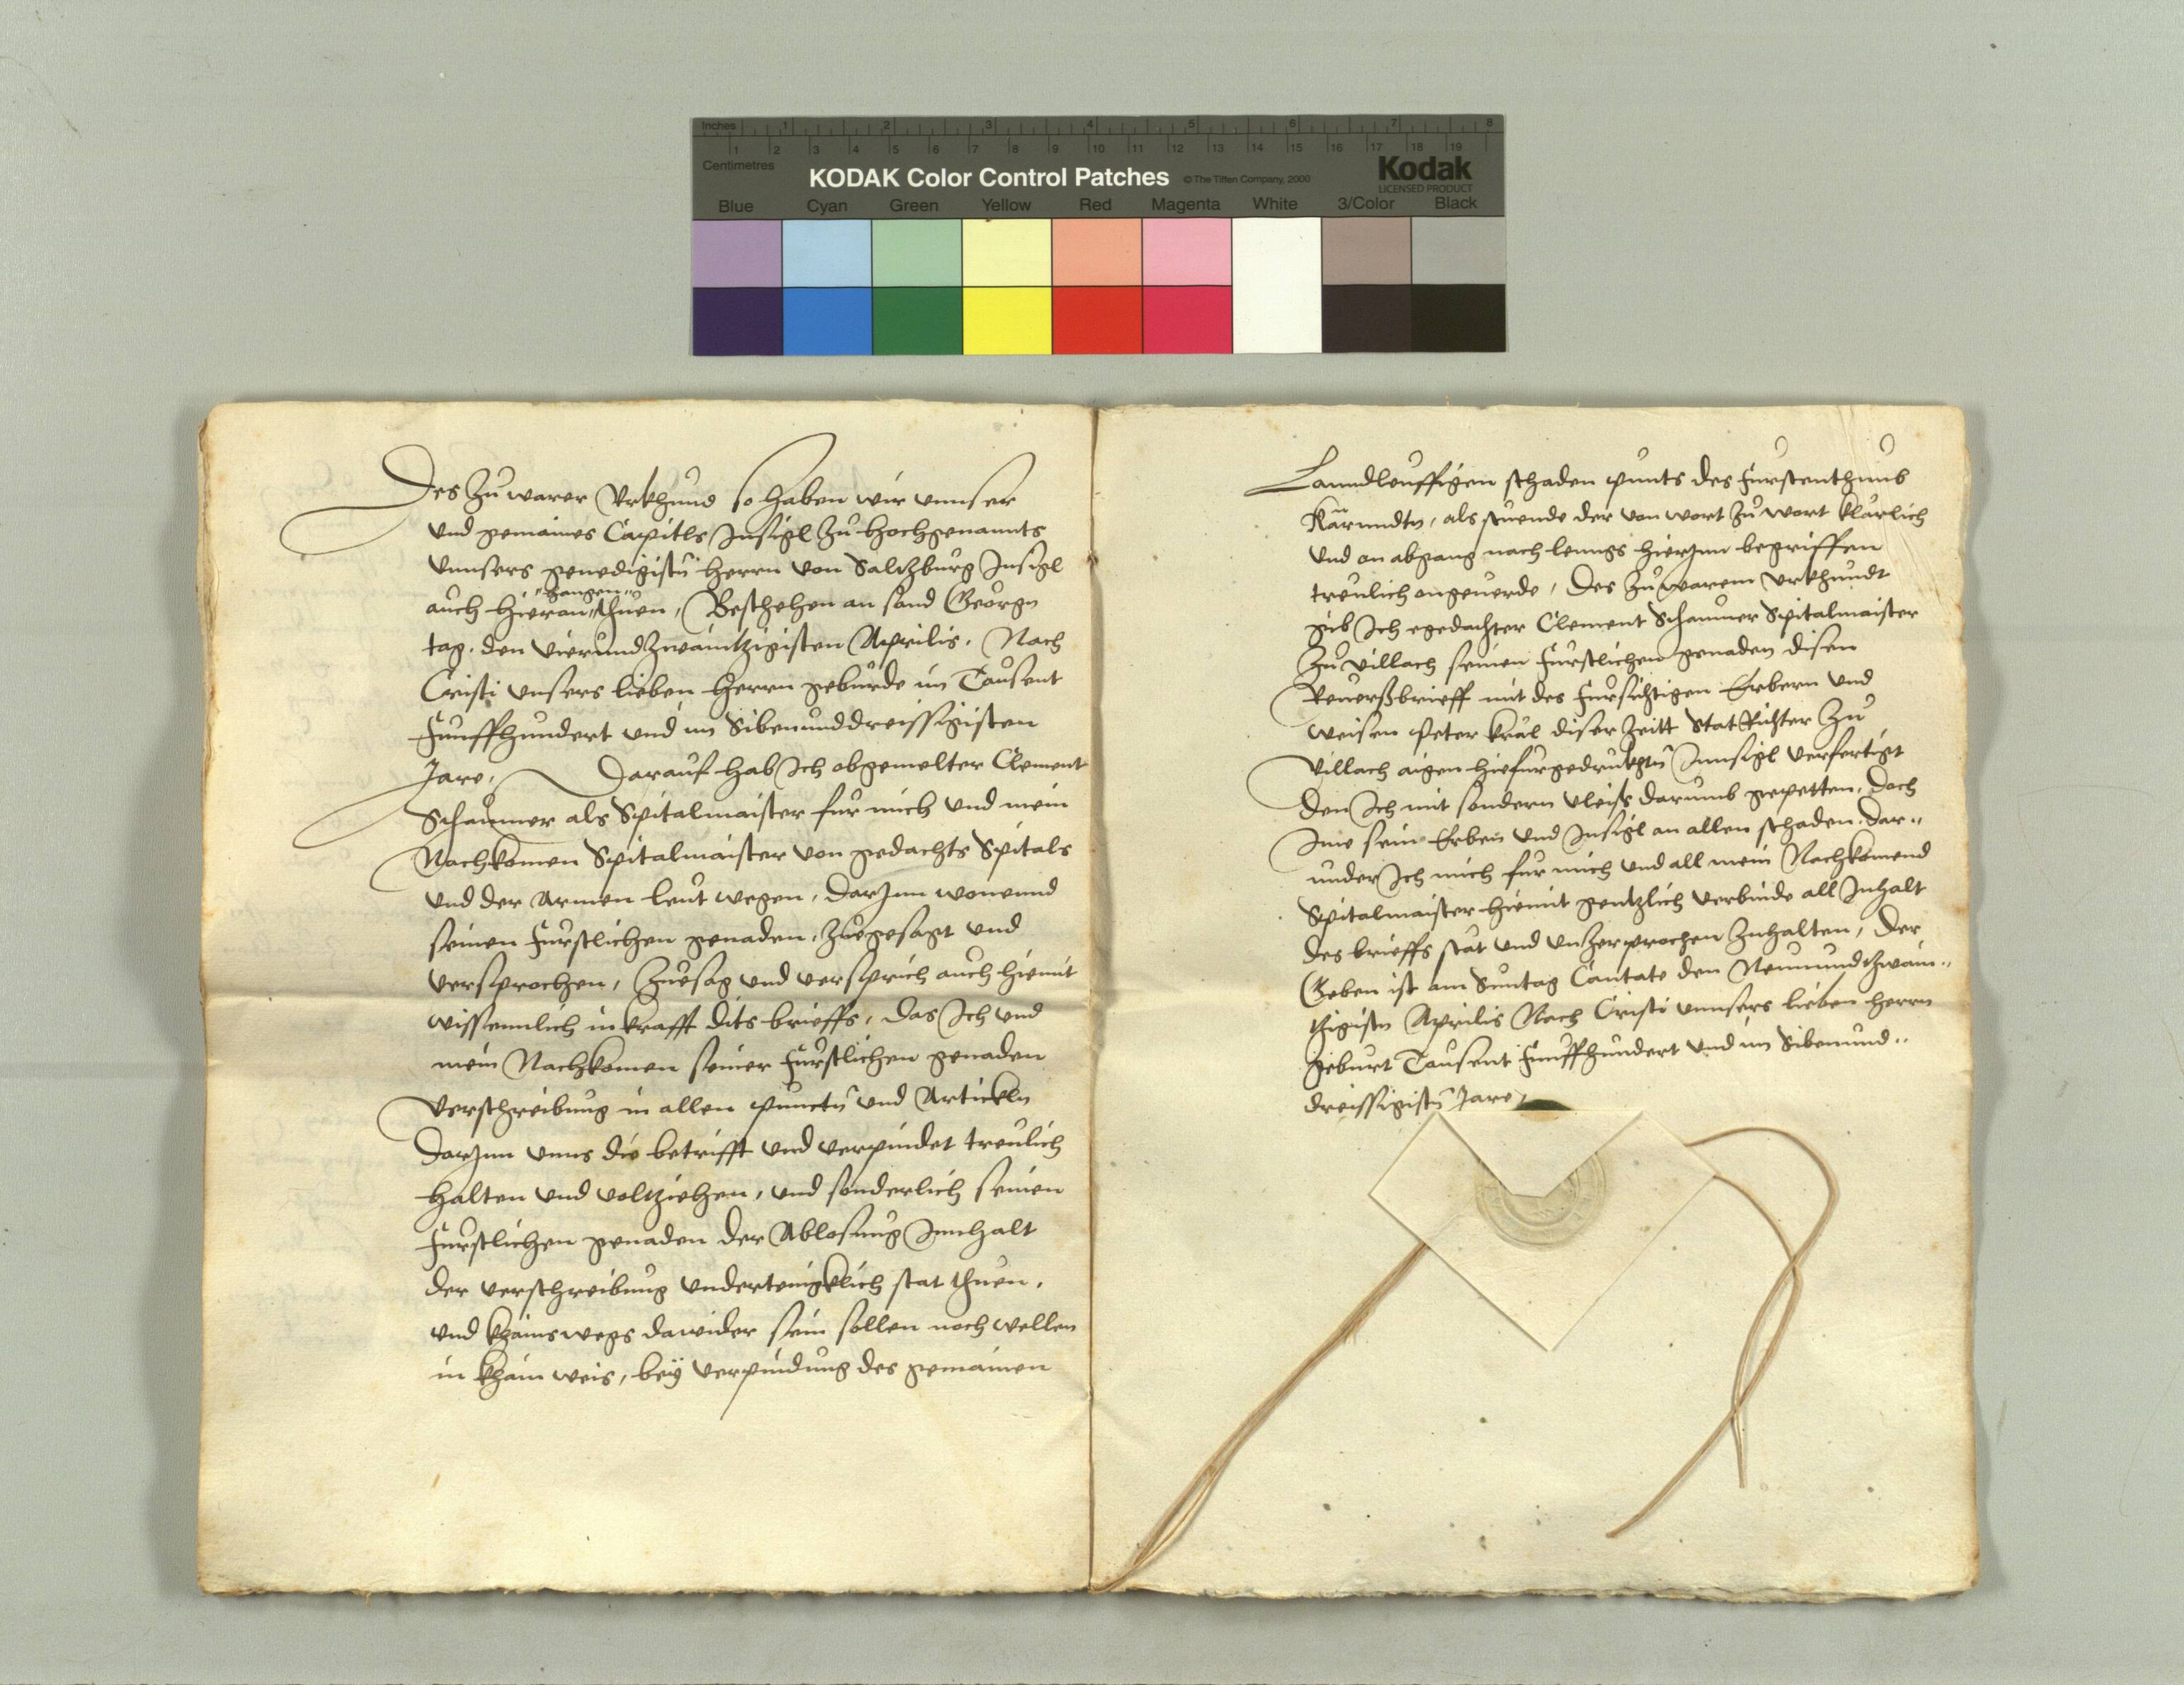 Inches 1 2 3 4 5 6 7 8
1 2 3 4 5 6 7 8 9 10 11 12 13 14 15 16 17 18 19
Centimetres
KODAK Color Control Patches © The Tiffen Company, 2000
Kodak
LICENSED PRODUCT
Blue Cyan Green Yellow Red Magenta White 3/Color Black
Des zu warer Urkhund so haben wir unnser
und gemaines Capitls Insigl zu hochgenannts
unnsers genedigistn herrn von Saltzburg Insigl
hangen
auch hieran thuen, Beschehen an sand Georgn
tag. den vierundzwaintzigisten Aprilis. Nach
Cristi unsers lieben herrn geburde im Tausent
Funffhundert und im Sibenunddreissigisten
Jare, Darauf hab Ich obgemelter Clement
Schaumer als Spitalmaister fur mich und mein
Nachkomen Spitalmaister von gedachts Spitals
und der Armen leut wegen, darJnn wonennd
seinen Furstlichen genaden, zuegesagt und
versprochen, Zuesag und versprich auch hiemit
wissenntlich in krafft dits brieffs, das Ich und
mein Nachkomen seiner Furstlichen genaden
verschreibung in allen punctn und Artickln
darJnn unns die betrifft und verpindet treulich
halten und voltziehen, und sonderlich seinen
Furstlichen genaden der Ablosung Innhalt
der verschreibung undertenigklich stat thuen,
und khains wegs dawider sein sollen noch wellen
in khain weis, bey verpindung des gemainen
Lanndleuffigen schaden punts des Furstenthumb
Kärnndtn, als stuende der von wort zu wort klärlich
und on abgang nach lenngs hierJnn begriffen
treulich ongeuerde, Des zu warem urkhundt
gib Ich egedachter Clement Schaumer Spitalmaister
zu villach seinen Furstlichen genaden disen
Reuerßbrieff mit des Fursichtigen Erbern und
weisen Peter kräl diser Zeitt Stat Richter zu
villach aigen hiefurgedrukhtn Innsigl verfertigt
den Ich mit sondern vleiss darumb gepetten, doch
Ime sein Erben und Insigl an allen schaden. dar-
under Ich mich fur mich und all mein Nachkomend
Spitalmaister hiemit genntzlich verbinde all Inhalt
des brieffs stät und unzerprochen zuhalten, Der
Geben ist am Suntag Cantate den Neunundzwain-
tzigistn Aprilis Nach Cristi unnsers lieben herrn
geburt Tausent Funffhundert und im Sibenund-
dreissigistn Jare,